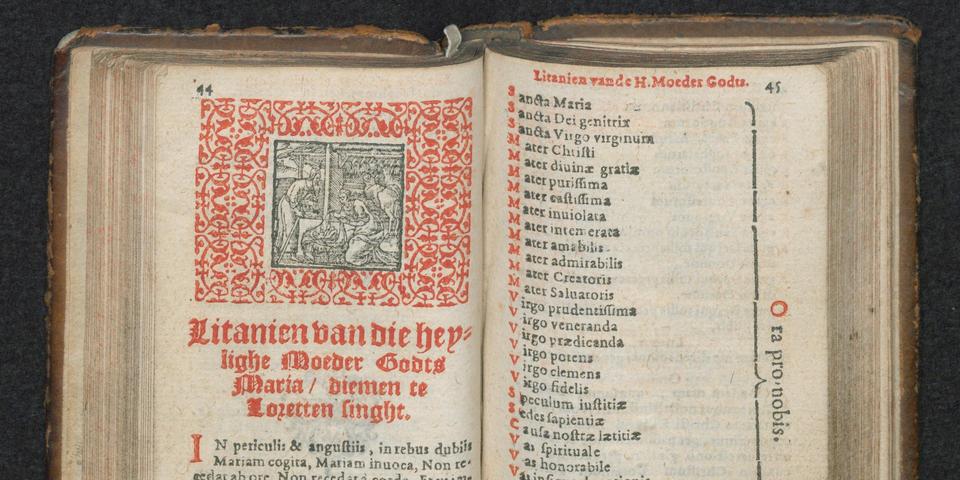 44
Litanien van die hey-
lighe Moeder Godts
Maria / diemen te
Loretten singht.
IN periculis & angustiis, in rebus dubiis
Mariam cogita, Mariam inuoca, Non re-
cedat ab ore, Non recedat a corde,
Litanien vande H. Moeder Godts.
45
Sancta Maria
Sancta Dei genitrix
Sancta Virgo virginum
Mater Christi
Mater diuinæ gratiæ
Mater purissima
Mater castissima
Mater inuiolata
Mater intemerata
Mater amabilis
Mater admirabilis
Mater Creatoris
Mater Saluatoris
Virgo prudentissima
Virgo veneranda
Virgo prædicanda
Virgo potens
Virgo clemens
Virgo fidelis
Speculum iustitiæ
Sedes sapientiæ
Causa nostræ lætitiæ
Vas spirituale
Vas honorabile
Ora pro nobis.